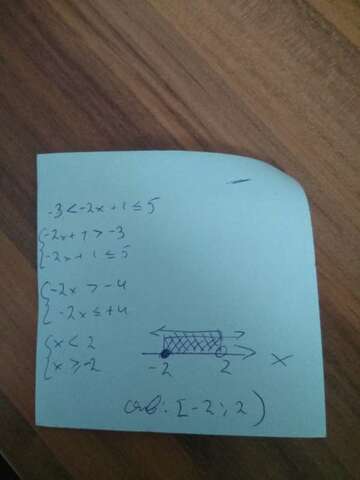 -3 < -2x + 1 ≤ 5
{-2x + 1 > -3
{-2x + 1 ≤ 5
{-2x > -4
{-2x ≤ +4
{x < 2
{x ≥ -2
-2 2 x
Отв: [-2; 2)